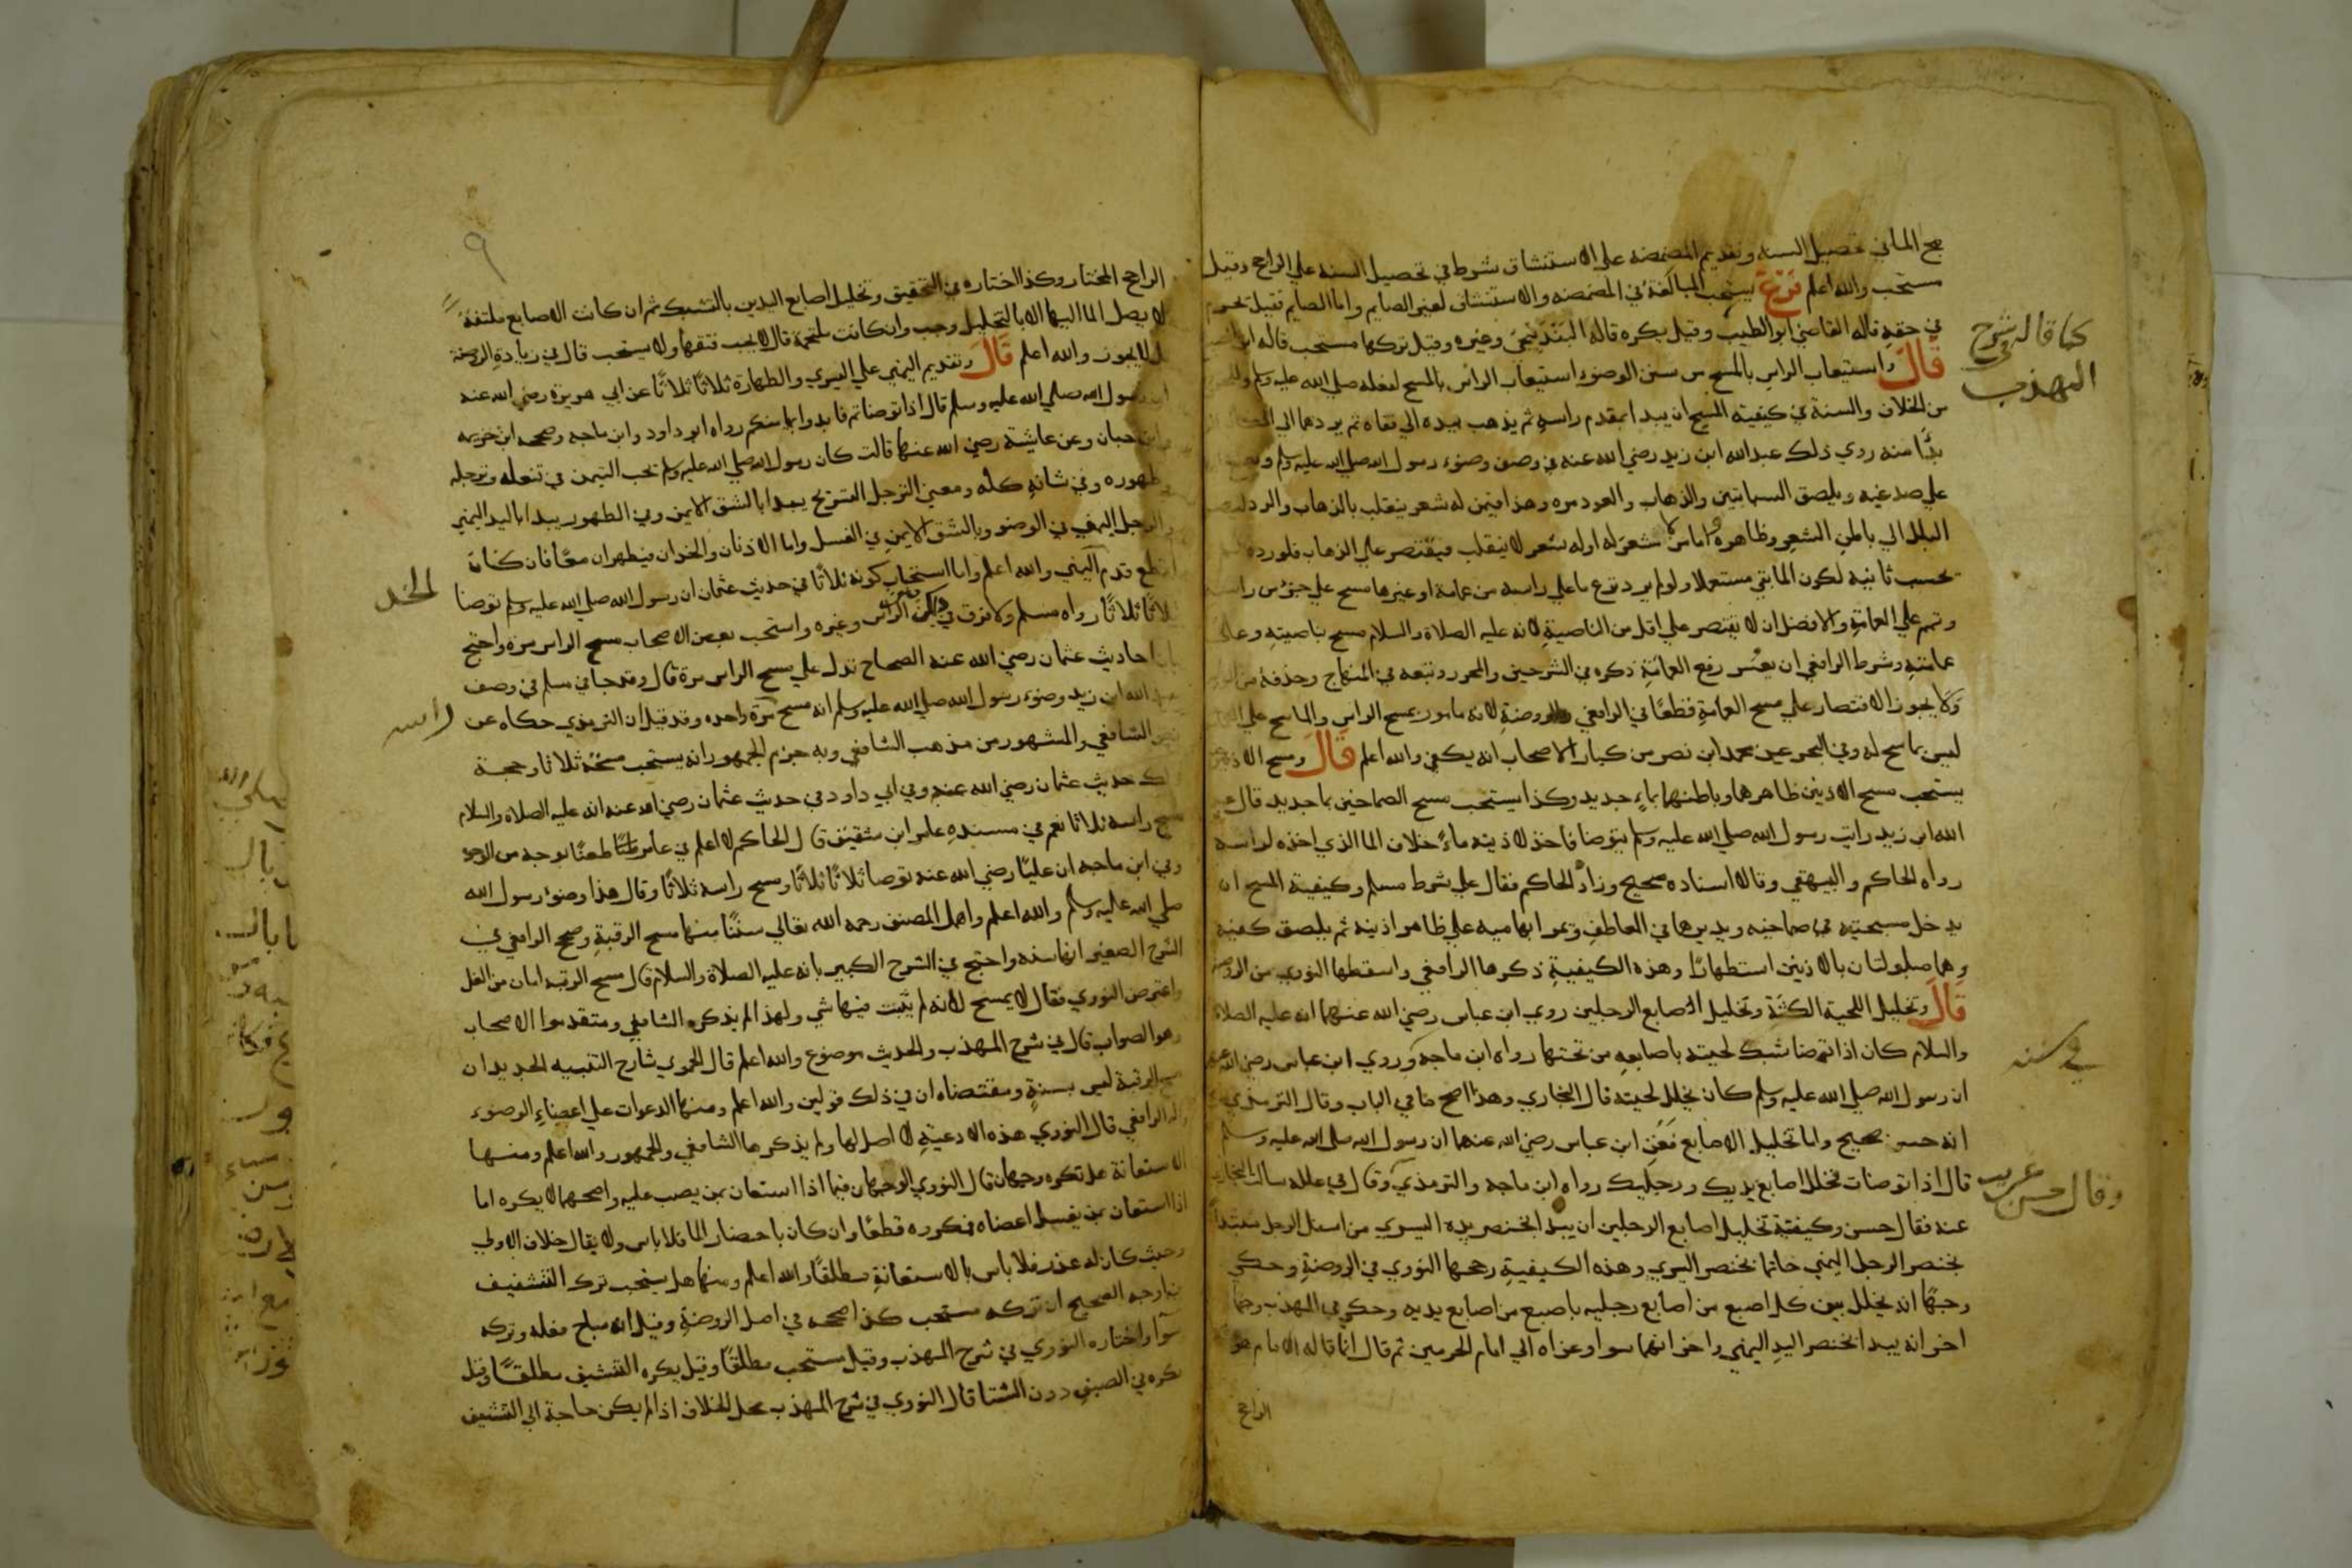 مج الماني تحصيل السنه وتقديم المضمضه على الاستنشاق شرط في تحصيل السنه علي الراجح وقيل
مستحب والله اعلم فرع يستحب المبالغة في المضمضه والاستنشاق لغير الصايم واما الصايم فقيل تحرم
في حقه قاله القاضي ابو الطيب وقيل يكره قاله البندنيجي وغيره وقيل تركها مستحب قاله ابن
قال واستيعاب الراس بالمسح من سنن الوضوء استيعاب الراس بالمسح لفعله صلى الله عليه وسلم
من الخلاف والسنة في كيفيته المسح ان يبدا بمقدم راسه ثم يذهب بيده الي قفاه ثم يردهما الي
بدأ منه روي ذلك عبدالله ابن زيد رضي الله عنه في وصف وضوء رسول الله صلي الله عليه وسلم
علي صدغيه ويلصق السبابتين والذهاب والعود مره وهذا فيمن له شعر ينقلب بالذهاب والرد
البلل الي باطن الشعر وظاهره واما من لا شعر له او له شعر لا ينقلب فيقتصر علي الذهاب فلو رده
تحسب ثانيه لكون الما بقي مستعملا ولو لم يرد نزع ما علي راسه من عمامة او غيرها مسح علي جزء من راسه
وتمم علي العمامة والافضل ان لا يقتصر علي اقل من الناصية لانه عليه الصلاة والسلام مسح بناصيته وعلي
عمامته وشرط الرافعي ان يعسر رفع العمامة ذكره في الشرحين والمحرر وتبعه في المنهاج وحذفه من
ولا يجوز الاقتصار علي مسح العمامة قطعا في الرافعي والروضة لانه مامور بمسح الراس والماسح علي
ليس بماسح له وفي البحر عن محمد ابن نصر من كبار الاصحاب انه يكفي والله اعلم قال ومسح الاذنين
يستحب مسح الاذنين ظاهرهما وباطنهما بماء جديد وكذا يستحب مسح الصماخين بما جديد قال
الله ابن زيد رايت رسول الله صلي الله عليه وسلم يتوضا فاخذ لاذنيه ماء خلاف الما الذي اخذه لراسه
رواه الحاكم والبيهقي وقال اسناده صحيح وزاد الحاكم فقال علي شرط مسلم وكيفية المسح ان
يدخل مسبحتيه في صماخيه ويديرهما في المعاطف ويمر ابهاميه علي ظاهر اذنيه ثم يلصق كفيه
وهما مبلولتان بالاذنين استظهارا وهذه الكيفية ذكرها الرافعي واسقطها النووي من الروضة
قال وتخليل اللحية الكثة وتخليل اصابع الرجلين روي ابن عباس رضي الله عنهما انه عليه الصلاة
والسلام كان اذا توضا شبك لحيته باصابعه من تحتها رواه ابن ماجه وروي ابن عباس رضي الله عنه
ان رسول الله صلي الله عليه وسلم كان يخلل لحيته قال البخاري وهذا اصح ما في الباب وقال الترمذي
انه حسن صحيح واما تخليل الاصابع فعن ابن عباس رضي الله عنهما ان رسول الله صلي الله عليه وسلم
قال اذا توضات فخلل اصابع يديك ورجليك رواه ابن ماجه والترمذي وقال في علله سالت البخاري
عنه فقال حسن وكيفية تخليل اصابع الرجلين ان يبدا بخنصر يده اليسري من اسفل الرجل مبتديا
بخنصر الرجل اليمني خاتما بخنصر اليسري وهذه الكيفية رجحها النووي في الروضة وحكي
وجها انه يخلل بين كل اصبع من اصابع رجليه باصبع من اصابع يديه وحكي في المهذب وجها
اخر انه يبدا بخنصر اليد اليمني واخر انهما سوا وعزاه الي امام الحرمين ثم قال انما قاله الامام هو
الراجح
كما قاله في شرح
المهذب
في سننه
وقال حسن غريب
٩
الراجح المختار وكذا اختاره في التحقيق وتخليل اصابع اليدين بالتشبيك ثم ان كانت الاصابع ملتفة
لا يصل الما اليها الا بالتخليل وجب وان كانت ملتحمة قال لا يجب فتقها ولا يستحب قال في زيادة الروضة
بل لا يجوز والله اعلم قال وتقديم اليمني علي اليسري والطهارة ثلاثا ثلاثا عن ابي هريرة رضي الله عنه
ان رسول الله صلي الله عليه وسلم قال اذا توضاتم فابدوا بميامنكم رواه ابو داود وابن ماجه وصححه ابن خزيمه
وابن حبان وعن عايشة رضي الله عنها قالت كان رسول الله صلي الله عليه وسلم يحب التيمن في تنعله وترجله
وطهوره وفي شانه كله ومعني الترجل التسريح يبدا بالشق الايمن وفي الطهور يبدا باليد اليمني
والرجل اليمني في الوضو وبالشق الايمن في الغسل واما الاذنان والخدان فيطهران معا فان كان
اقطع قدم اليمني والله اعلم واما استحباب كونه ثلاثا في حديث عثمان ان رسول الله صلي الله عليه وسلم توضا
ثلاثا ثلاثا رواه مسلم ولا فرق في ذلك بين الراس وغيره واستحب بعض الاصحاب مسح الراس مرة واحتج
بان احاديث عثمان رضي الله عنه الصحاح تدل علي مسح الراس مرة قال وقد جا في مسلم في وصف
عبد الله ابن زيد وضوء رسول الله صلي الله عليه وسلم انه مسح مرة واحده وقد قيل ان الترمذي حكاه عن
الشافعي والمشهور من مذهب الشافعي وبه جزم الجمهور انه يستحب مسحه ثلاثا وحجة
ذلك حديث عثمان رضي الله عنه وفي ابي داود في حديث عثمان رضي الله عنه انه عليه الصلاة والسلام
مسح راسه ثلاثا نعم في مسنده عامر ابن شقيق قال الحاكم لا اعلم في عامر طعنا بوجه من الوجوه
وفي ابن ماجه ان عليا رضي الله عنه توضا ثلاثا ثلاثا ومسح راسه ثلاثا وقال هذا وضوء رسول الله
صلي الله عليه وسلم والله اعلم واهمل المصنف رحمه الله تعالي سننا منها مسح الرقبة وصحح الرافعي في
الشرح الصغير انها سنه واحتج في الشرح الكبير بانه عليه الصلاة والسلام قال مسح الرقبه امان من الغل
واعترض النووي فقال لا يمسح لانه لم يثبت فيها شي ولهذا لم يذكره الشافعي ومتقدموا الاصحاب
وهو الصواب قال في شرح المهذب والحديث موضوع والله اعلم قال الحموي شارح التنبيه الجديد ان
مسح الرقبة ليس بسنة ومقتضاه ان في ذلك قولين والله اعلم ومنها الدعوات علي اعضاء الوضوء
قاله الرافعي قال النووي هذه الادعية لا اصل لها ولم يذكرها الشافعي والجمهور والله اعلم ومنها
الاستعانة هل تكره وجهان قال النووي الوجهان فيما اذا استعان بمن يصب عليه واصحهما لا يكره اما
اذا استعان بمن يغسل اعضاه فمكروه قطعا وان كان باحضار الما فلا باس ولا يقال خلاف الاولي
وحيث كان له عذر فلا باس بالاستعانة مطلقا والله اعلم ومنها هل يستحب ترك التنشيف
فيه اوجه الصحيح ان تركه مستحب كذا صححه في اصل الروضة وقيل انه مباح فعله وتركه
سوآ واختاره النووي في شرح المهذب وقيل مستحب مطلقا وقيل يكره التنشيف مطلقا وقيل
يكره في الصيف دون الشتا قال النووي في شرح المهذب محل الخلاف اذا لم يكن حاجة الي التنشيف
الخد
راسه